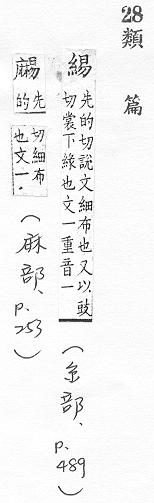 28類篇
緆 先的切說文細布也又以豉
切裳下緣也文一重音一
(糸部、p.489)
䴮 先的
切細布
也文一.
(麻部、p.253)